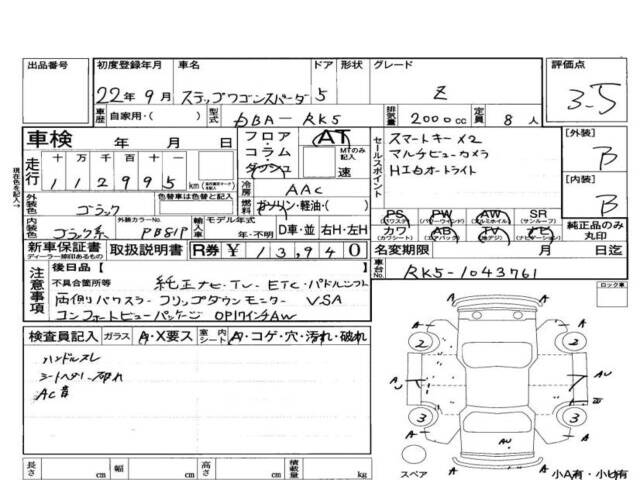 出品番号 初度登録年月 車名 ドア 形状 グレード 評価点
22年9月 ステップワゴンスパーダ 5 Z 3.5
車歴 自家用・( ) 型式 DBA-RK5 排気量 2000cc 定員 8人
車検 年 月 日 フロア・コラム・ダッシュ AT MTのみ記入 速
セールスポイント スマートキーx2
マルチビューカメラ
HIDオートライト
[外装] B
[内装] B
現在色を記入→
走行 十 万 千 百 十
112995 km
冷房 AAC
外装色 ブラック 色替車は色替と記入 燃料 ガソリン・軽油・( )
PS (パワステ) PW (パワーウインド) AW (アルミホイル) SR (サンルーフ)
カワ (カワシート) AB (エアバック) TV (地デジ) ナビ (ナビゲーション)
純正品のみ丸印
内装色 ブラック系 外装カラーNo. PB81P 輸入車 モデル年式 年・不明 D車・並 右H・左H
新車保証書 ディーラー捺印あるもの 取扱説明書 R券 ¥ 13,940
名変期限 月 日迄
車台No. RK5-1043761
注意事項 後日品[ ]
不具合箇所等 純正ナビ・TV・ETC・パドルシフト
両側パワスラ・フリップダウンモニター VSA
コンフォートビューパッケージ OP17インチAW
ロック車
検査員記入 ガラス A・X要ス 室内シート A・コゲ・穴・汚れ・破れ
ハンドルスレ
AC音
A A
2 3
A AU
3 3
AU
A A
スペア 小A有・小U有
長さ cm 幅 cm 高さ cm 積載量 kg